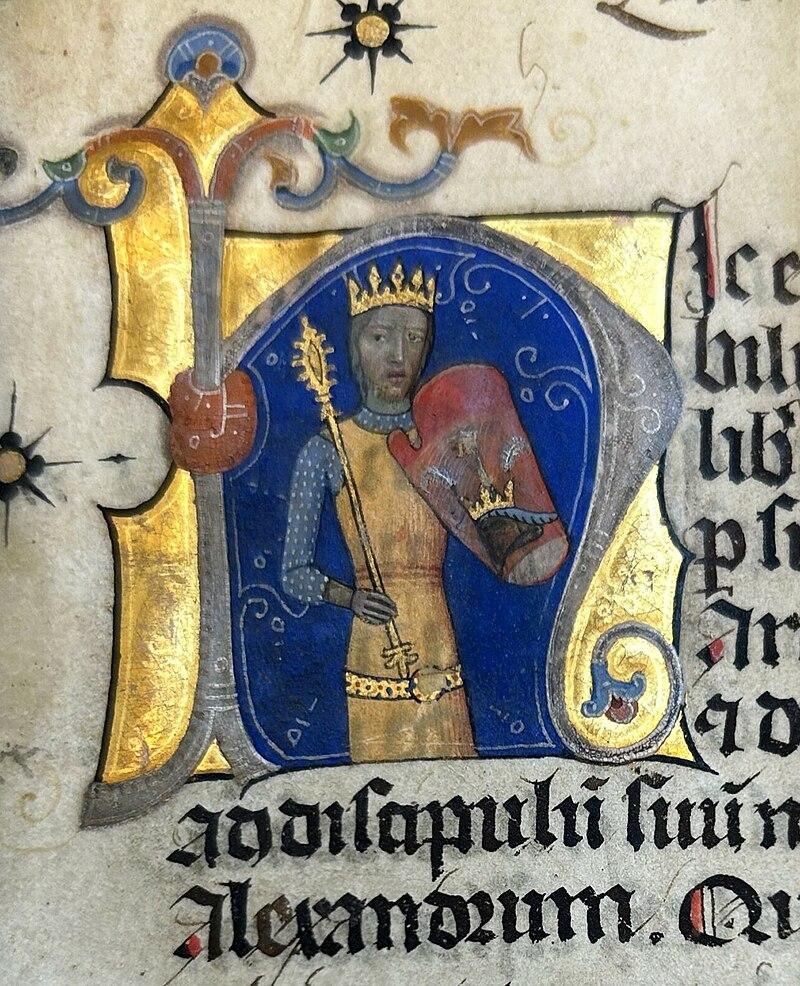 Hice
bili
lib
p si
Ari
ad
ad discipulū suū m
Alexandrum. Qu